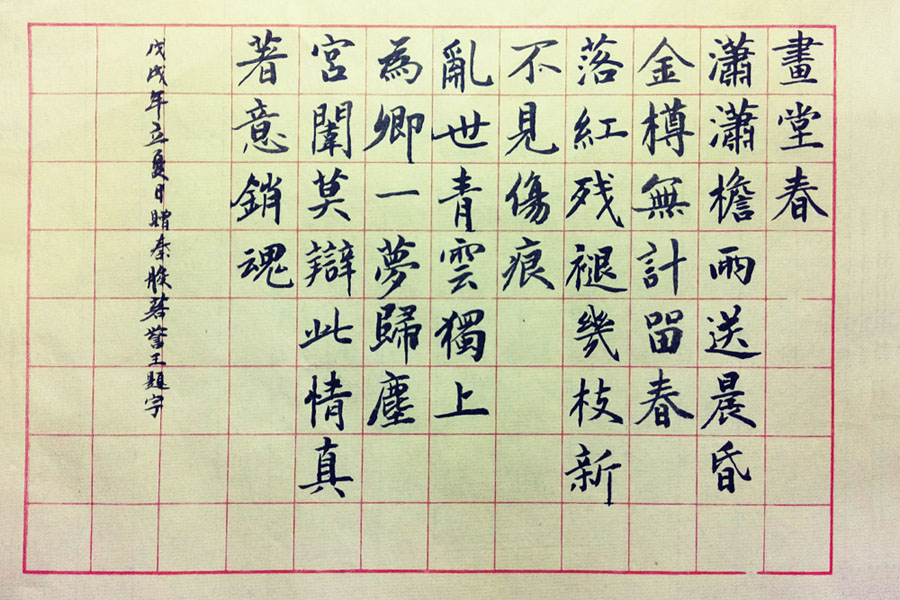 畫堂春
瀟瀟檐雨送晨昏
金樽無計留春
落紅残褪幾枝新
不見傷痕
亂世青雲獨上
為卿一夢歸塵
宮闈莫辯此情真
著意銷魂
戊戌年立夏日贈秦般若譽王題字